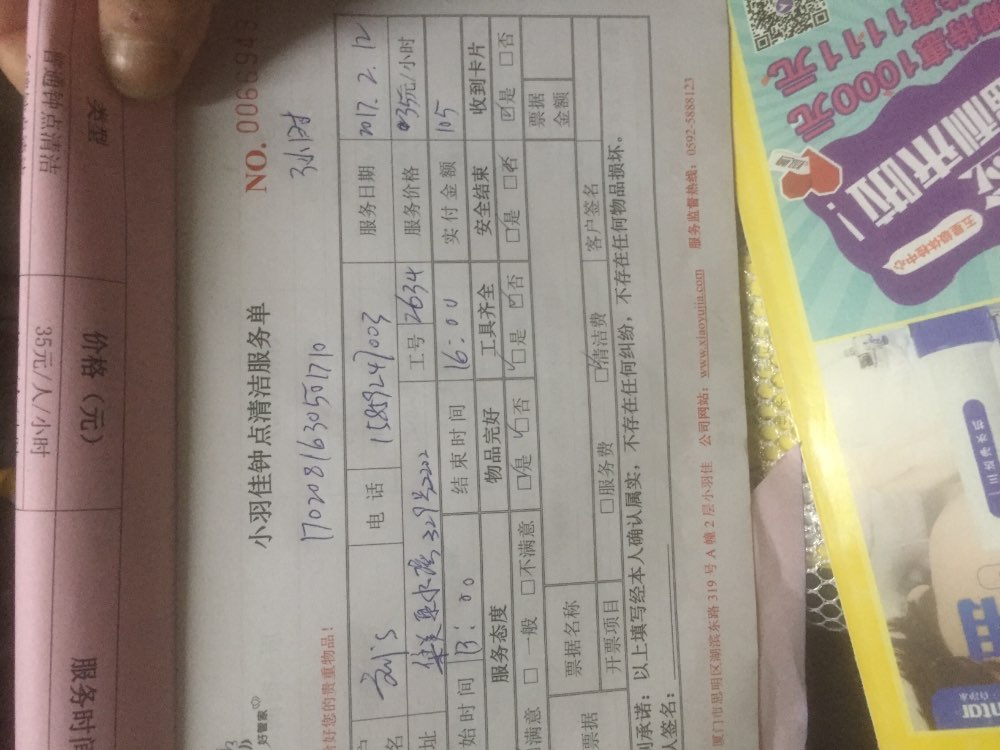 类型
价格（元）
服务时间
普通钟点清洁
35元/人/小时
好管家
小羽佳钟点清洁服务单
NO. 0066949
1702081630501710
3小时
好您的贵重物品！
电话
15859247003
服务日期
2017.2.12
名
址
329号2202
工号
2634
服务价格
35元/小时
始时间
13:00
结束时间
16:00
实付金额
105
服务态度
物品完好
工具齐全
安全结束
收到卡片
满意 □一般 □不满意
☑是 □否
□是 ☑否
□是 □否
☑是 □否
票据
票据名称
票据金额
开票项目
□服务费
☑清洁费
客户签名
承诺：以上填写经本人确认属实，不存在任何纠纷，不存在任何物品损坏。
人签名：
厦门市思明区湖滨东路 319 号 A 幢 2 层小羽佳
公司网站：www.xiaoyujia.com
服务监督热线：0592-5888123
特惠1000元
惠1111元
福利来啦！
五星级体检中心